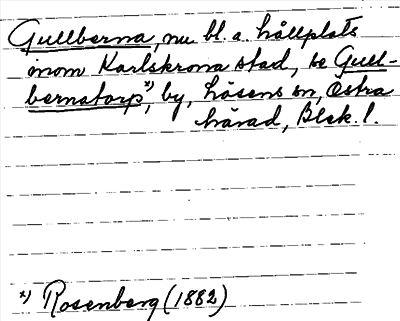 Gullberna, nu bl. a. hållplats
inom Karlskrona stad, se Gull-
bernatorp*), by, Lösens sn, Östra
härad, Blek. l.
*) Rosenberg (1882)